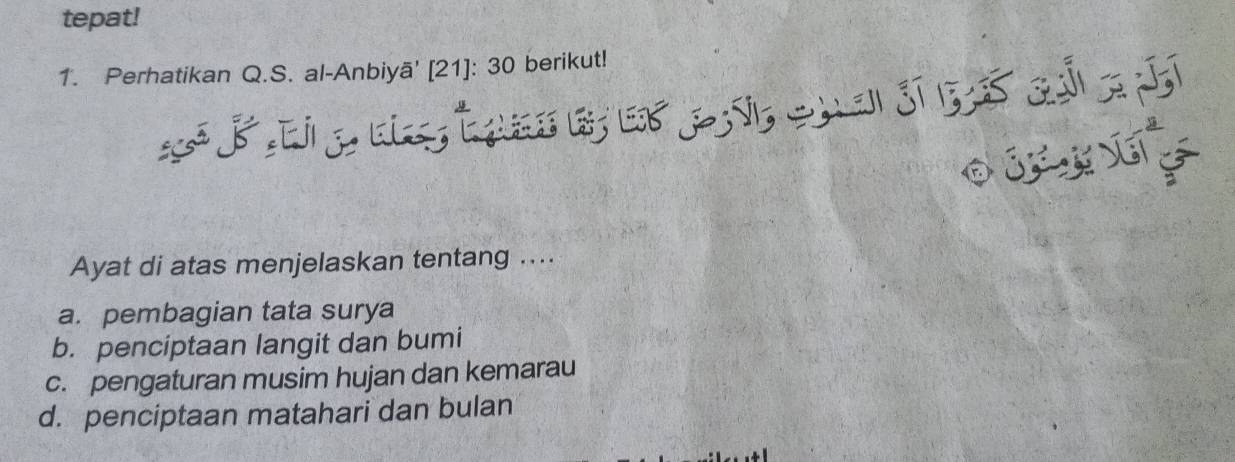 tepat!
1. Perhatikan Q.S. al-Anbiyā' [21]: 30 berikut!
اَوَلَمْ يَرَ الَّذِيْنَ كَفَرُوْٓا اَنَّ السَّمٰوٰتِ وَالْاَرْضَ كَانَتَا رَتْقًا فَفَتَقْنٰهُمَاۗ وَجَعَلْنَا مِنَ الْمَاۤءِ كُلَّ شَيْءٍ
حَيٍّۗ اَفَلَا يُؤْمِنُوْنَ ٣٠
Ayat di atas menjelaskan tentang ....
a. pembagian tata surya
b. penciptaan langit dan bumi
c. pengaturan musim hujan dan kemarau
d. penciptaan matahari dan bulan